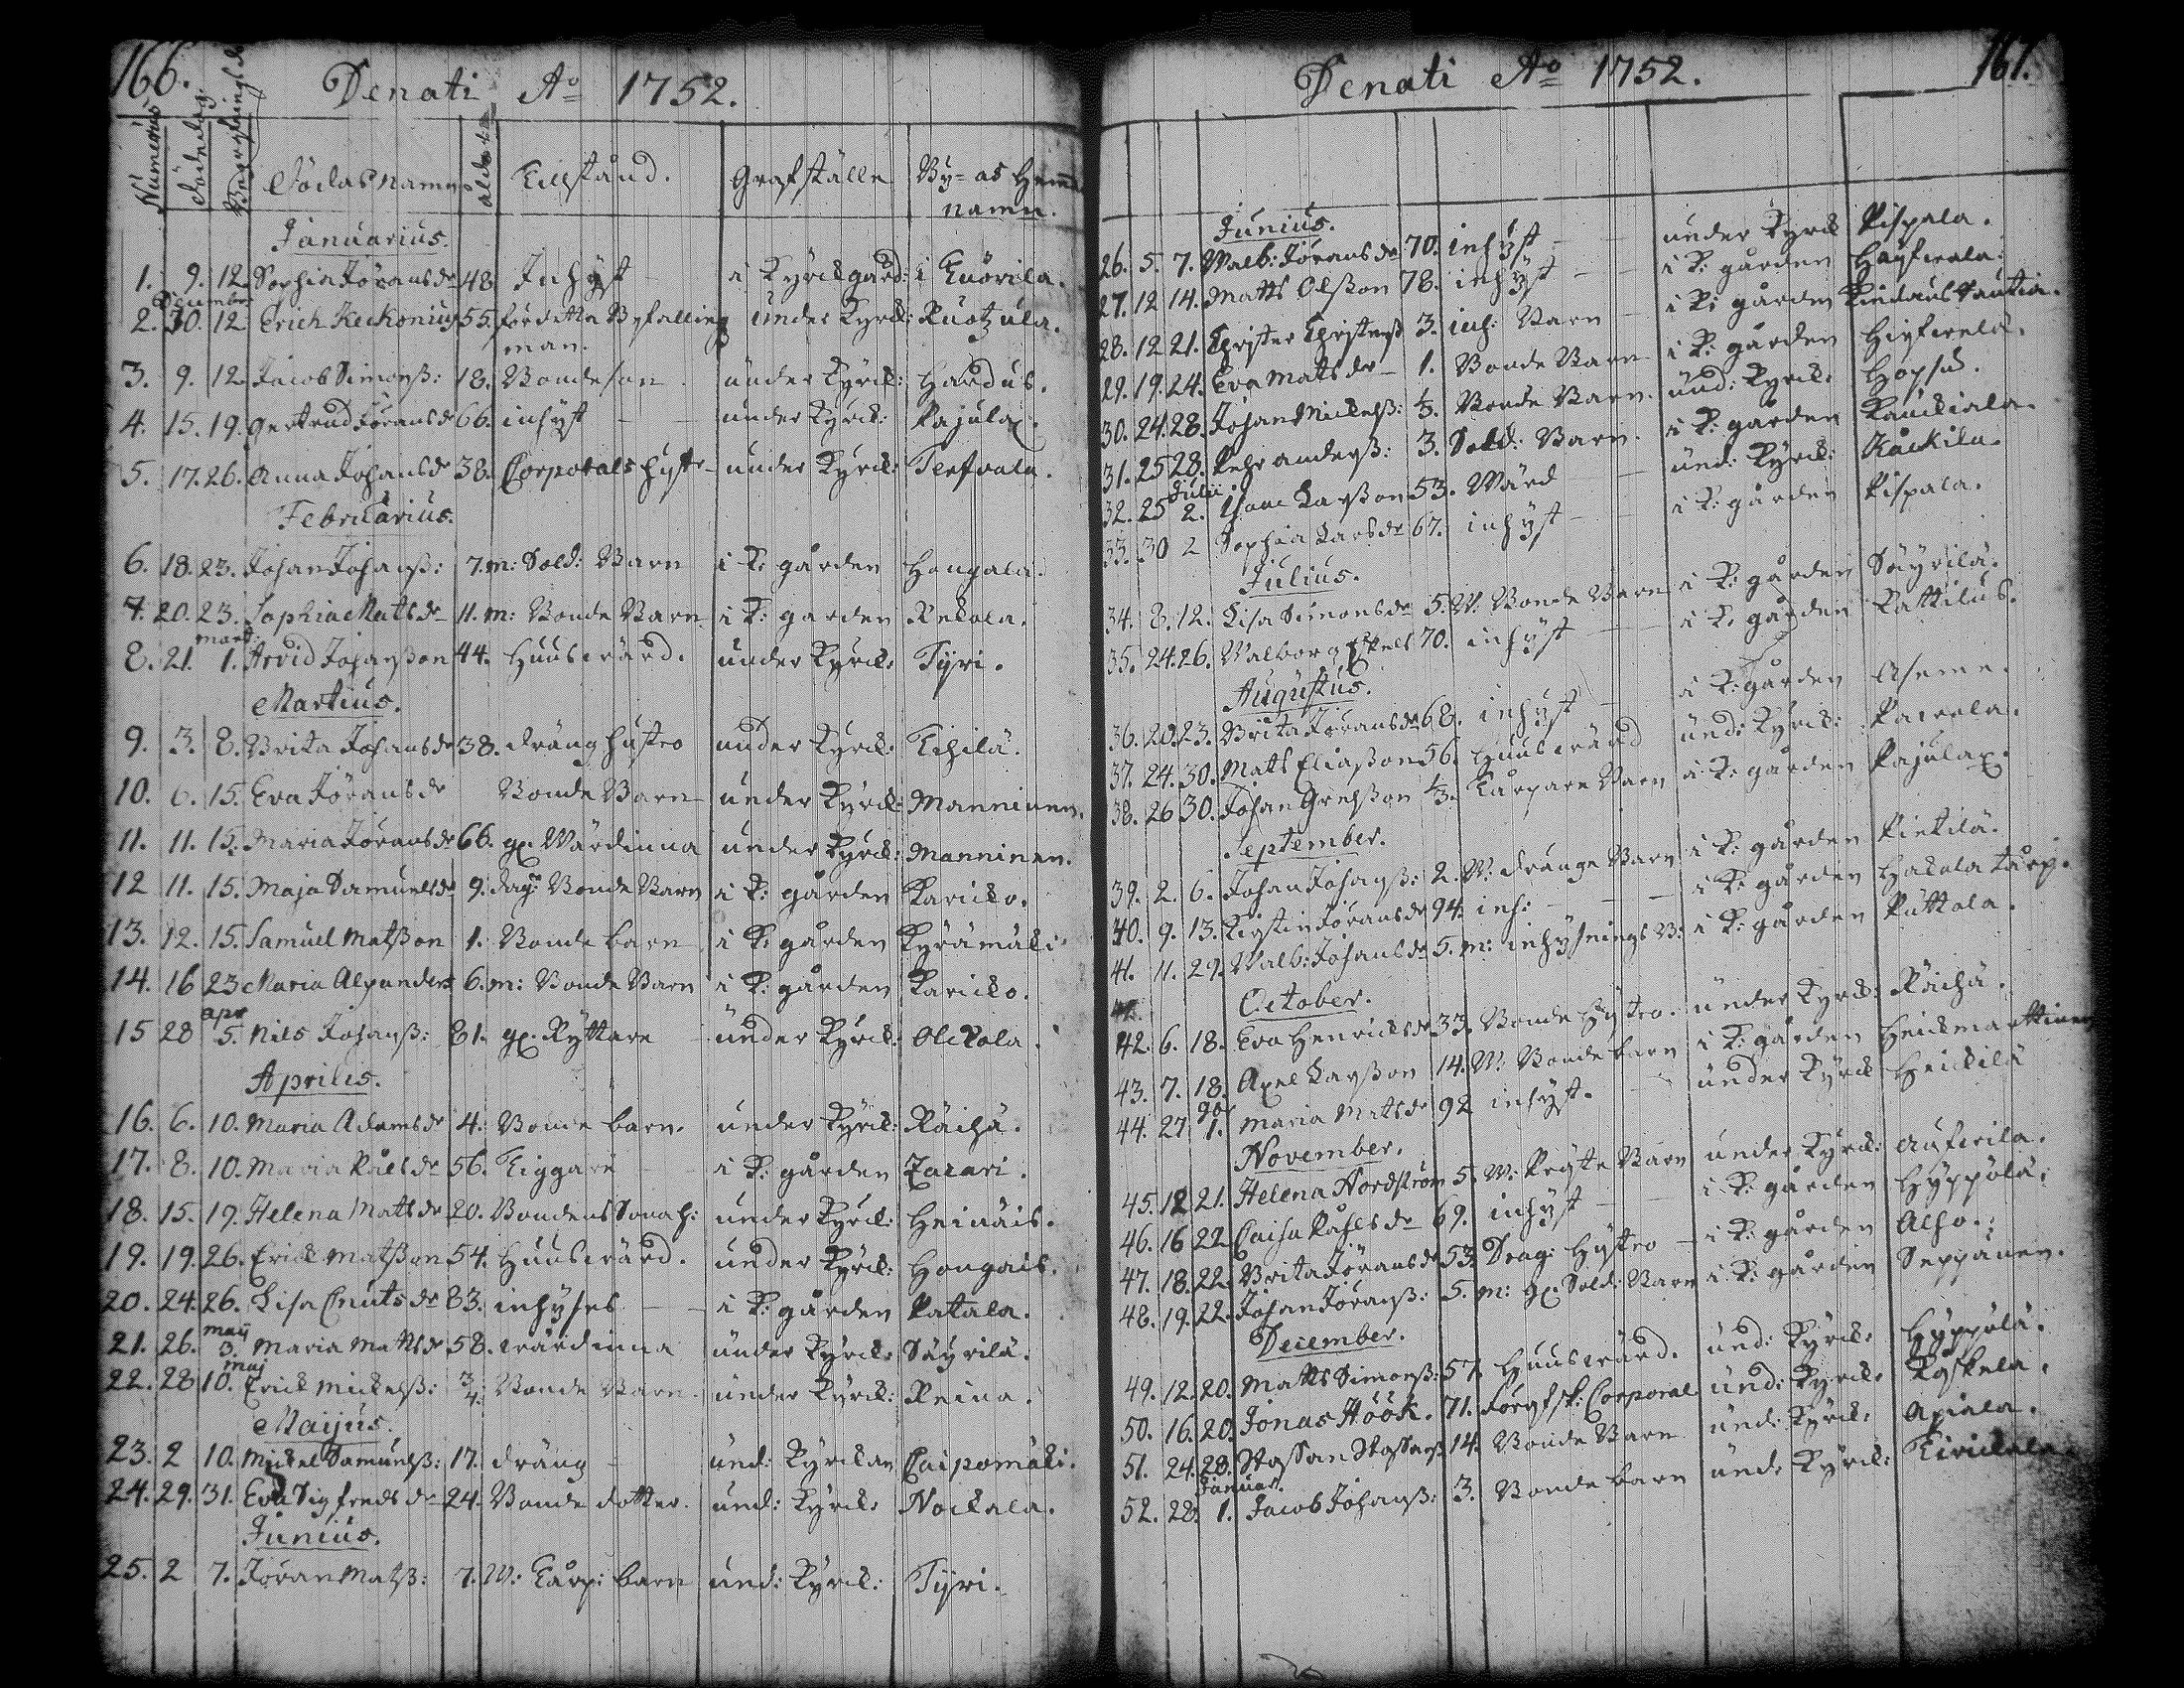 166.
Denati Aº 1752.
Numerus Dödedag. Begrafnings d.
Dödas namn ålder Tillstånd. Grafställe By- as Hem
namn.
Januarius.
1. 9. 12. Sophia Jöransdr 48. Inhyst i Kyrckgård:
December
2. 30. 12 Erich Keckonius 55. under Kyrck: Ruotzula.
man.
3. 9. 12. Jacob Simonss: 18. Bondeson under Kyrck: Haudus.
4. 15. 19. Gertrud Jöransdr 66. inhyst under Kyrck: Pajula.
5. 17. 26. Anna Johansdr 38. Corporals hustr under Kyrck:
Februarius.
6. 18. 23. Johan Johanss: 7. m: Sold: Barn i K: gården Hongala.
7. 20. 23. Sophia Mattsdr 11. m: Bonde Barn i K: garden Rekola.
mart:
8. 21. 1. Arvid Johansson 44. Huuswärd. under Kyrck: Tyri.
Martius.
9. 3. 8. Brita Johansdr 38. dräng hustro under Kyrck:
10. 6. 15. Eva Jöransdr Bonde Barn under Kyrck: Manninen.
11. 11. 15. Maria Jöransdr 66. gl. Wärdinna under Kyrck: Manninen.
12 11. 15. Maja Samuelsdr 9. dag: Bonde Barn i K: gården Karicko.
13. 12. 15. Samuel Matsson 1. Bonde barn i K: gården Kyrämäki.
14. 16 23 Maria Alexanders 6. m: Bonde Barn i K: gården Karicko.
apr
15 28 5. Nils Johanss: 81. gl. Ryttare under Kyrck: Ollola.
Aprilis.
16. 6. 10. Maria Adamsdr 4. Bonde barn. under Kyrck: Räihä.
17. 8. 10. Maria Påls dr 56. Tiggare i K: gården Zacari.
18. 15. 19. Helena Matts dr 20. Bondens Sonah: under Kyrck: Heinäis.
19. 19. 26. Erick Matsson 54. Huuswärd. under Kyrck: Hongais.
20. 24. 26. Lisa Cnuts dr 83. inhyses i K: gården Patala.
maij
21. 26. 3. Maria Matts dr 58. wärdinna under Kyrck: Säyrilä.
maj
22. 28 10. Erick Mickelss: 3/4. Bonde Barn. under Kyrck: Reina.
Maijus.
23. 2 10. Mickel Samuelss: 17. dräng und: Kyrckan Caipomäki.
24. 29. 31. Eva Sigfreds dr 24. Bonde dotter. und: Kyrck: Nockala.
Junius.
25. 2 7. Jöran Matss: 7. W: Tårp: barn und: Kyrck: Tyri.
Denati Aº 1752. 167.
Junius.
26. 5. 7. Walb: Jöransdr 70. inhyst under Kyrck Pispala.
27. 12 14. Matts Olsson 78. inhyst i K: gården
28. 12 21. Christer Christerss 3. inh: Barn i K: gården
29. 19. 24. Eva Matts dr 1. Bonde Barn i K: gården
30. 24. 28. Johan Mickelss: 1/3. Bonde Barn. und: Kyrck:
31. 25 28. Pehr Anderss: 3. Sold: Barn. i K: gården Kauckiala.
Julii.
32. 25 2. Isaac Larsson 53. Wärd und: Kyrck: Kåckila.
33. 30 2 Sophia Larsdr 67. inhyst i K: gården Pispala.
Julius.
34. 8. 12. Lisa Simonsdr 5. W: Bonde Barn i K: gården Säyrilä.
35. 24. 26. Walborg Eskels 70. inhyst i K: gården Pattilus.
Augustus.
36. 20. 23. Brita Jöransdr 68. inhyst i K: gården Aseme.
37. 24. 30. Matts Eliasson 56. Huuswärd und: Kyrck: Pawola.
38. 26 30. Johan Grelsson 1/3. Tårpare Barn i K: gården Pajula.
September.
39. 2. 6. Johan Johanss: 2. W: dränge Barn i K: gården Pietilä.
40. 9. 13. Kirstin Jöransdr 94. inh: i K: gården Hakola tårp.
41. 11. 29. Walb: Johansdr 5. m: inhysnings B: i K: gården Puttola.
October.
42. 6. 18. Eva Henricksdr 33. Bonde Hustro. under Kyrck: Räihä.
43. 7. 18. Axel Larsson 14. W: Bonde barn i K: gården Heickmarttinen
9br
44. 27 1. Maria Mattsdr 92 inhyst. under Kyrck Heickilä
November.
45. 12 21. Helena Nordström 5. W: Barn under Kyrck:
46. 16 22 Caisa Påhlsdr 69. inhyst i K: gården Hyppölä.
47. 18. 22. Brita Jöransdr 53. Drag: Hustro i K: gården Alho.
48. 19. 22. Johan Jöranss: 5. m: gl. Sold: Barn i K: gården Seppänen.
December.
49. 12. 20. Matts Simonss: 57. Huuswärd. und: Kyrck: Hyppölä.
50. 16. 20. Jonas Höök. 71. Corporal und: Kyrck: Koskela.
51. 24. 28. Staffan Staffanss 14. Bonde Barn und: Kyrck:
Januar.
52. 28. 1. Jacob Johanss: 3. Bonde barn und: Kyrck: